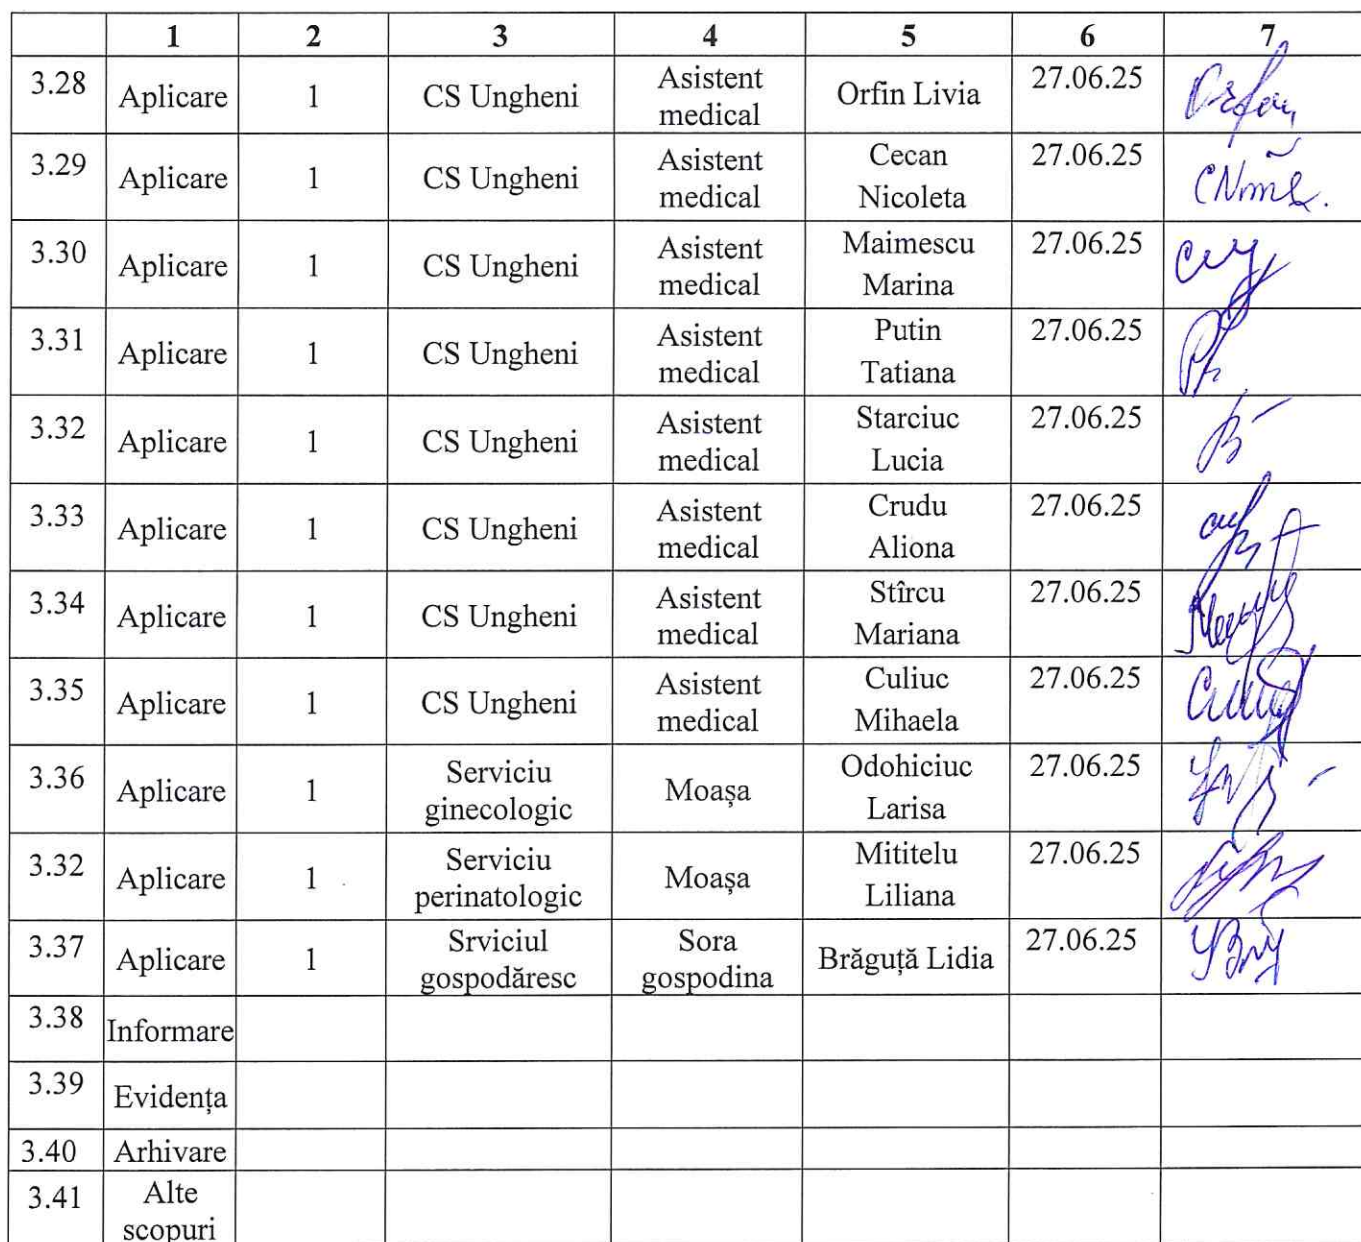 1 2 3 4 5 6 7
3.28 Aplicare 1 CS Ungheni Asistent medical Orfin Livia 27.06.25
3.29 Aplicare 1 CS Ungheni Asistent medical Cecan Nicoleta 27.06.25
3.30 Aplicare 1 CS Ungheni Asistent medical Maimescu Marina 27.06.25
3.31 Aplicare 1 CS Ungheni Asistent medical Putin Tatiana 27.06.25
3.32 Aplicare 1 CS Ungheni Asistent medical Starciuc Lucia 27.06.25
3.33 Aplicare 1 CS Ungheni Asistent medical Crudu Aliona 27.06.25
3.34 Aplicare 1 CS Ungheni Asistent medical Stîrcu Mariana 27.06.25
3.35 Aplicare 1 CS Ungheni Asistent medical Culiuc Mihaela 27.06.25
3.36 Aplicare 1 Serviciu ginecologic Moașa Odohiciuc Larisa 27.06.25
3.32 Aplicare 1 Serviciu perinatologic Moașa Mititelu Liliana 27.06.25
3.37 Aplicare 1 Srviciul gospodăresc Sora gospodina Brăguță Lidia 27.06.25
3.38 Informare
3.39 Evidența
3.40 Arhivare
3.41 Alte scopuri